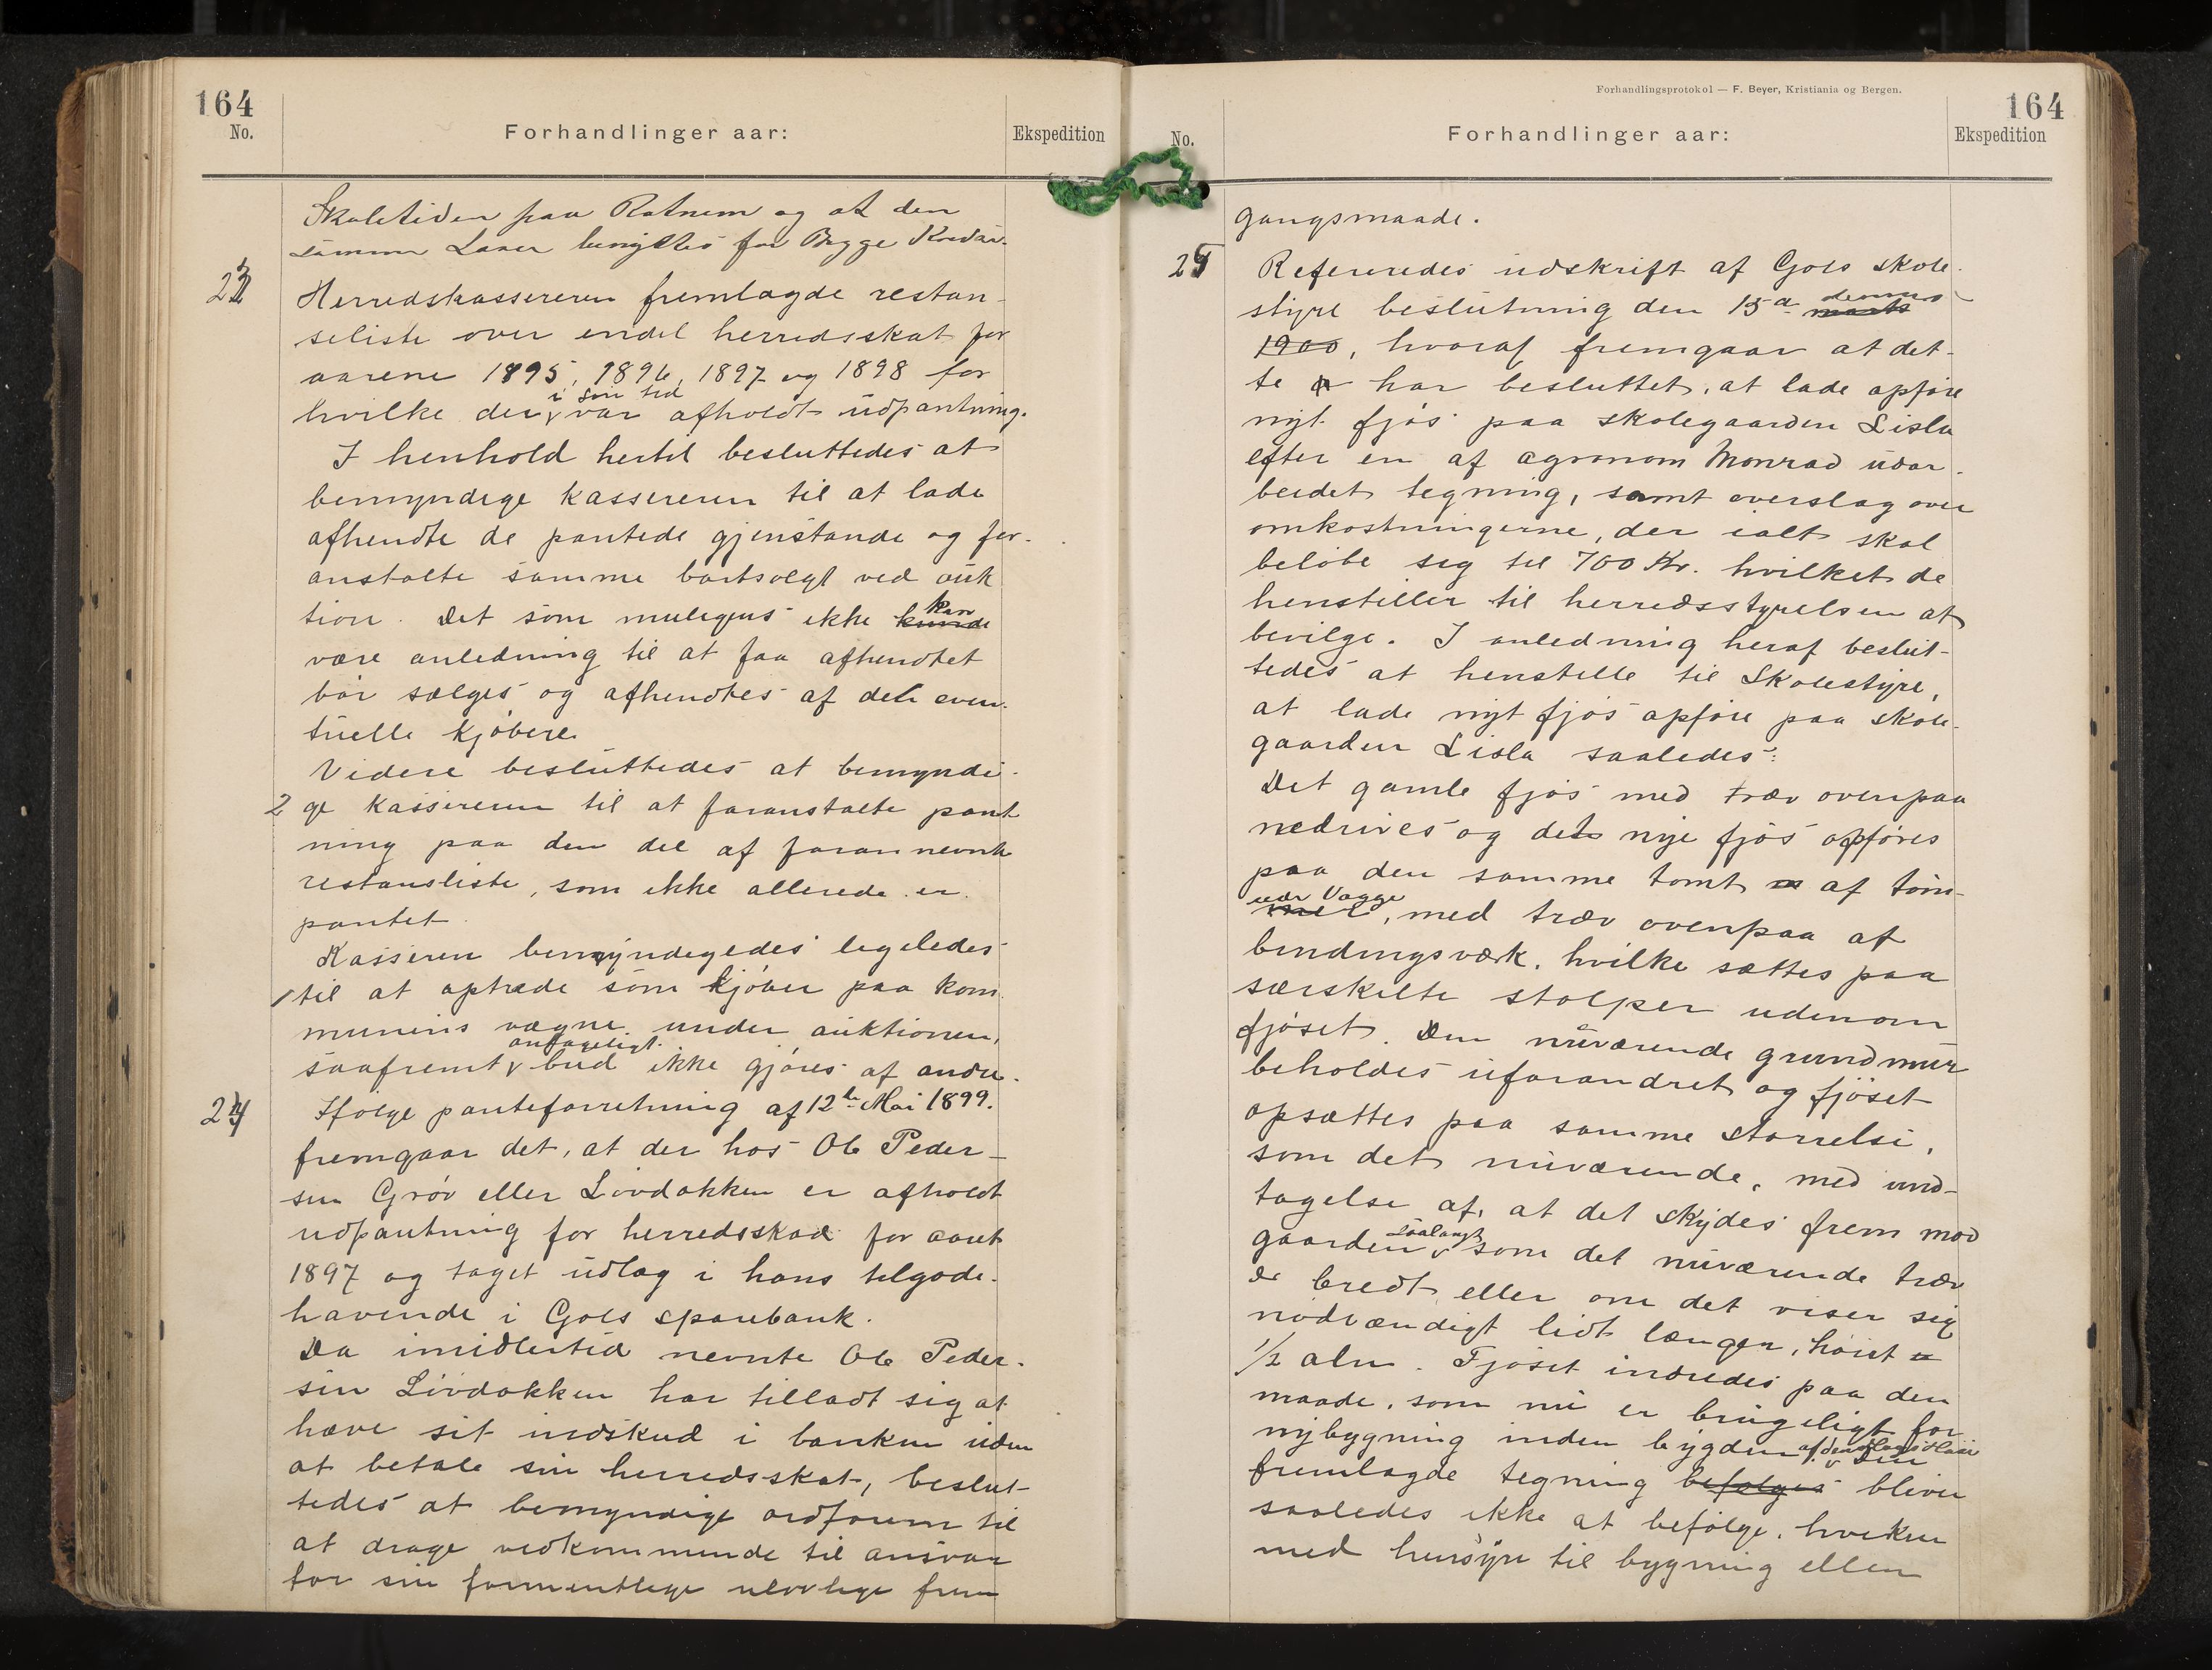 164
No.
Forhandlinger aar:
Ekspedition
Skoletiden paa Rotnem og at den
samme Lærer benyttes for Begge Kredse.
23
Herredskassereren fremlagde restan-
seliste over endel herredsskat for
aarene 1895, 1896, 1897 og 1898 for
i sin tid
hvilke der var afholdt udpantning.
I henhold hertil besluttedes at
bemyndige kassereren til at lade
afhendte de pantede gjenstande og for-
anstalte samme bortsolgt ved auk
kan
tion. Det som muligens ikke kunde
være anledning til at faa afhendtet
bør sælges og afhendtes af den even-
tuelle kjøbere.
Videre besluttedes at bemyndi-
2 ge kassereren til at foranstalte pant
ning paa den del af forannevnte
restansliste, som ikke allerede er
pantet.
Kasseren bemyndigedes ligeledes
1 til at optræde som kjøber paa kom
munens vægne under auktionen,
antageligt
saafremt bud ikke gjøres af andre.
24
Ifølge panteforretning af 12te Mai 1899.
fremgaar det, at der hos Ole Peder-
sen Grøv eller Livdokken er afholdt
udpantning for herredsskat for aaret
1897 og taget udlæg i hans tilgode-
havende i Gols sparebank.
Da imidlertid nevnte Ole Peder-
sen Livdokken har tilladt sig at
hæve sit indskud i banken uden
at betale sin herredsskat, beslut-
tedes at bemyndige ordføreren til
at drage vedkommende til ansvar
for sin formentlige ulovlige frem
Forhandlingsprotokol — F. Beyer, Kristiania og Bergen.
164
No.
Forhandlinger aar:
Ekspedition
gangsmaade.
25
Refereredes udskrift af Gols skole-
dennes
styre beslutning den 15de marts
1900, hvoraf fremgaar at det-
te har besluttet, at lade opføre
nyt fjøs paa skolegaarden Lisla
efter en af agronom Monrad udar-
beidet tegning, samt overslag over
omkostningerne, der ialt skal
beløbe sig til 700 Kr. hvilket de
henstiller til herredsstyrelsen at
bevilge. I anledning heraf beslut-
tedes at henstille til Skolestyre,
at lade nyt fjøs opføre paa skole-
gaarden Lisla saaledes:
Det gamle fjøs med træv ovenpaa
nedrives og det nye fjøs opføres
paa den samme tomt af tøm-
Vægge
mer, med træv ovenpaa af
bindingsværk, hvilke sættes paa
særskilte stolper udenom
fjøset. Den nuværende grundmur
beholdes uforandret og fjøset
opsættes paa samme størrelse,
som det nuværende, med und-
tagelse af, at det skydes frem mod
saalangt
gaarden som det nuværende træv
er bredt, eller om det viser sig
nødvændigt lidt længer, høist
1/2 alen. Fjøset indredes paa den
maade, som nu er brugeligt for
nybygning inden bygden. Den
fremlagde tegning befølges bliver
saaledes ikke at befølge, hverken
med hensyn til bygning eller